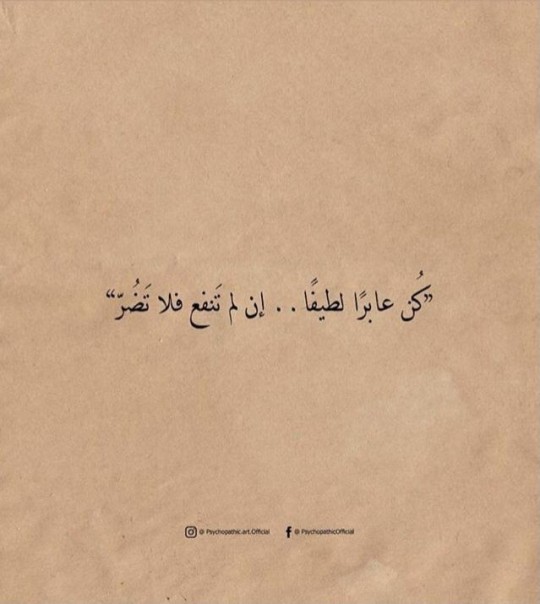 ”كُن عابرًا لطيفًا . . إن لم تَنفع فلا تَضُرّ“
@ Psychopathic.art.Official @ PsychopathicOfficial